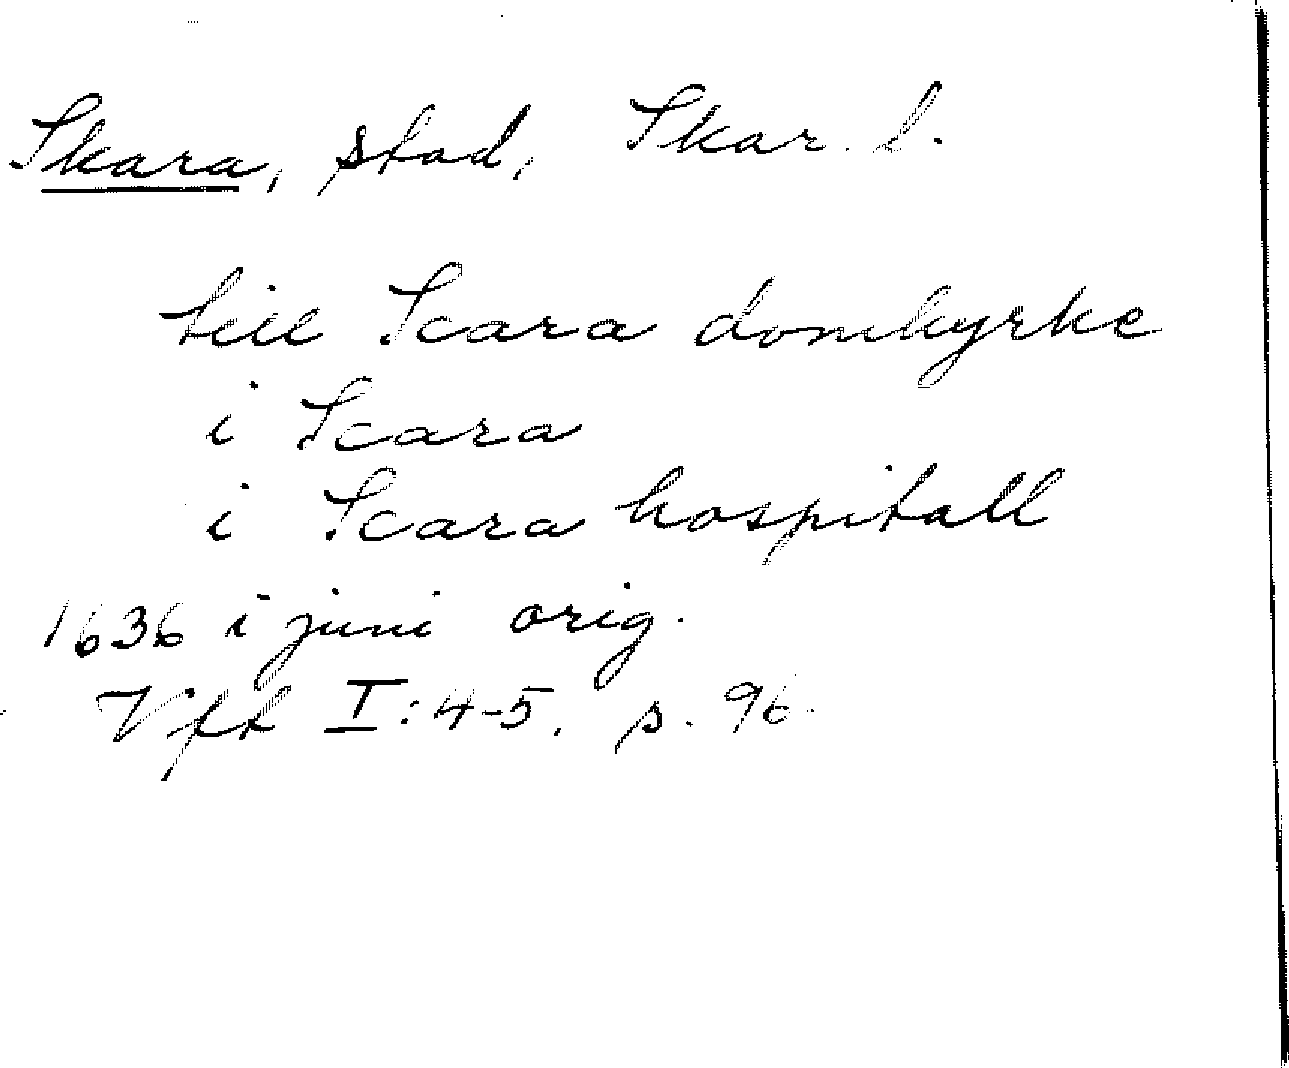 Skara, stad, Skar. l.
till Scara domkyrke
i Scara
i Scara hospitall
1636 i juni orig.
Vft I:4-5, s. 96.